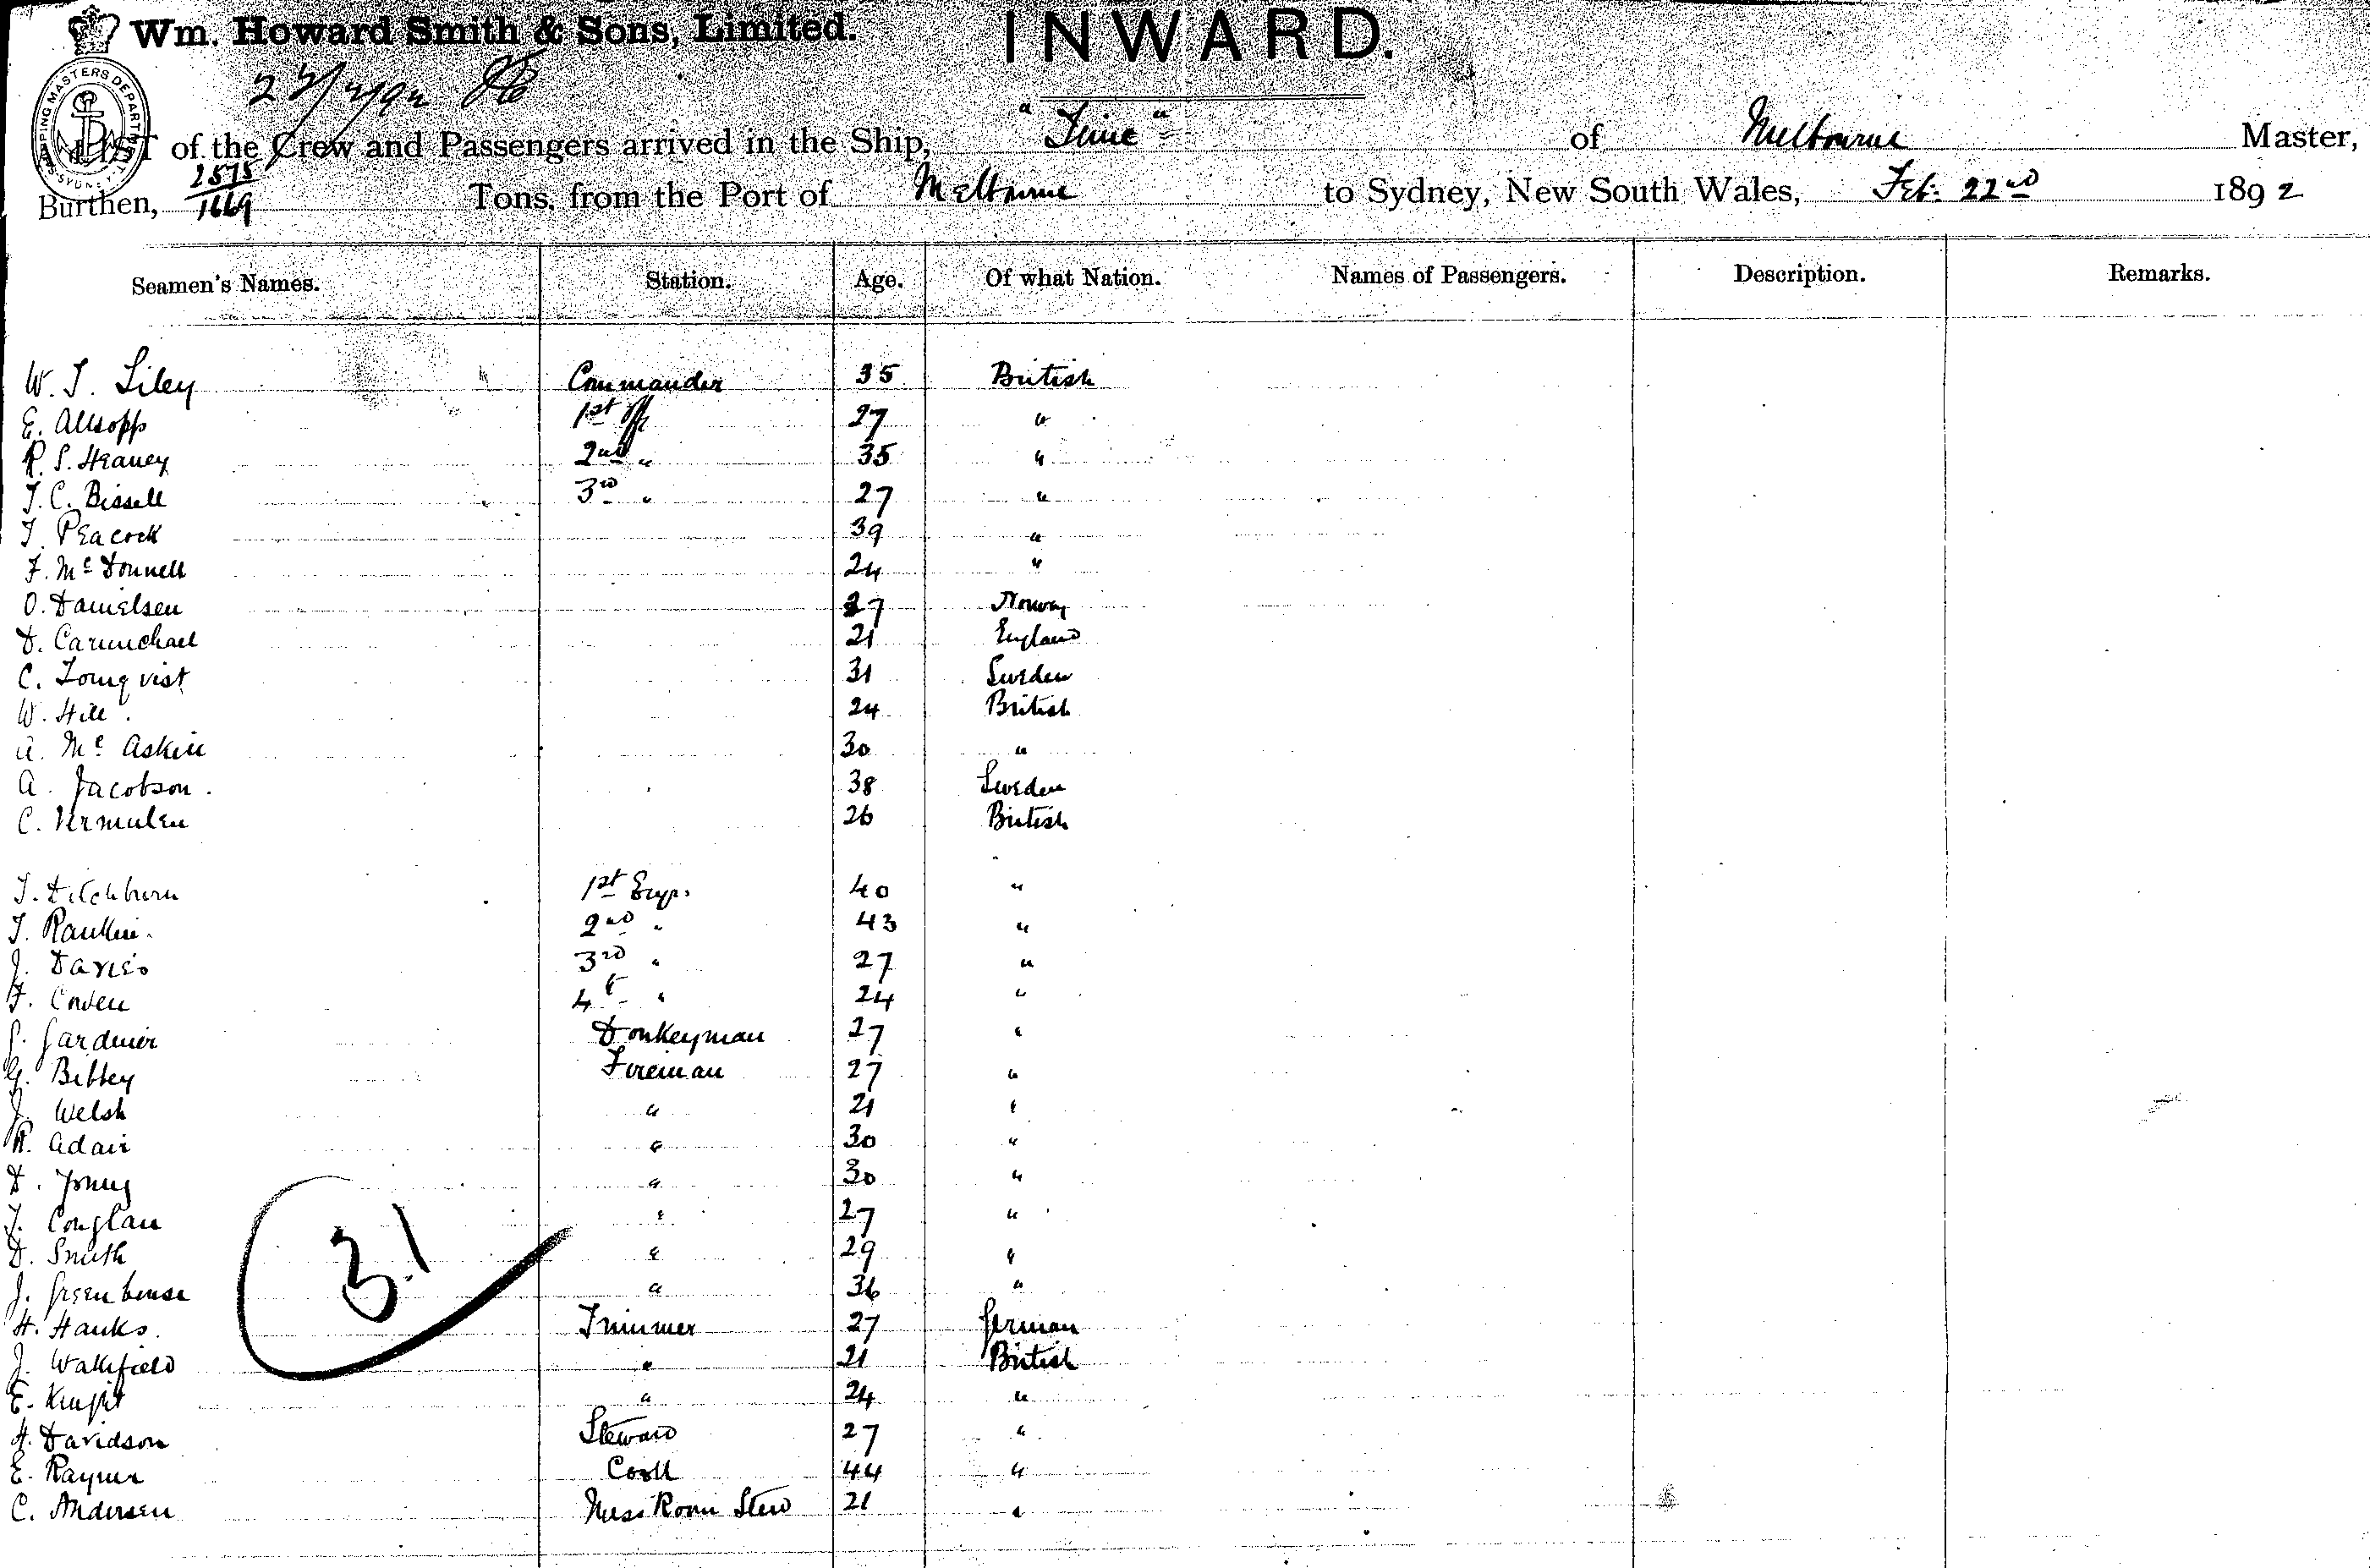 Wm. Howard Smith & Sons, Limited.
INWARD.
SHIPPING MASTERS DEPARTMENT SYDNEY
LIST of the Crew and Passengers arrived in the Ship, " Time " of Melbourne Master,
Burthen, 2575/1669 Tons, from the Port of Melbourne to Sydney, New South Wales, Feb. 22nd 1892
Seamen's Names. Station. Age. Of what Nation. Names of Passengers. Description. Remarks.
W. J. Liley Commander 35 British
E. Allsopp 1st Off 27 "
R. S. Heaney 2nd " 35 "
T. C. Bissell 3rd " 27 "
T. Peacock 39 "
F. McDonnell 24 "
O. Danielsen 27 Norway
D. Carmichael 21 England
C. Tornqvist 31 Sweden
W. Hill. 24 British
A. McAskin 30 "
A. Jacobson. 38 Sweden
C. Vermulen 26 British
T. Ditchburn 1st Engr. 40 "
T. Rankin. 2nd " 43 "
J. Davies 3rd " 27 "
F. Cowen 4th " 24 "
G. Gardiner Donkeyman 27 "
G. Bibbey Fireman 27 "
J. Welsh " 21 "
R. Adair " 30 "
D. Young " 30 "
T. Conglan " 27 "
D. Smith " 29 "
J. Greenhouse " 36 "
H. Hanks. Trimmer 27 German
J. Wakefield " 21 British
E. Knight " 24 "
H. Davidson Steward 27 "
E. Rayner Cook 44 "
C. Andersen Mess Room Stew 21 "
31